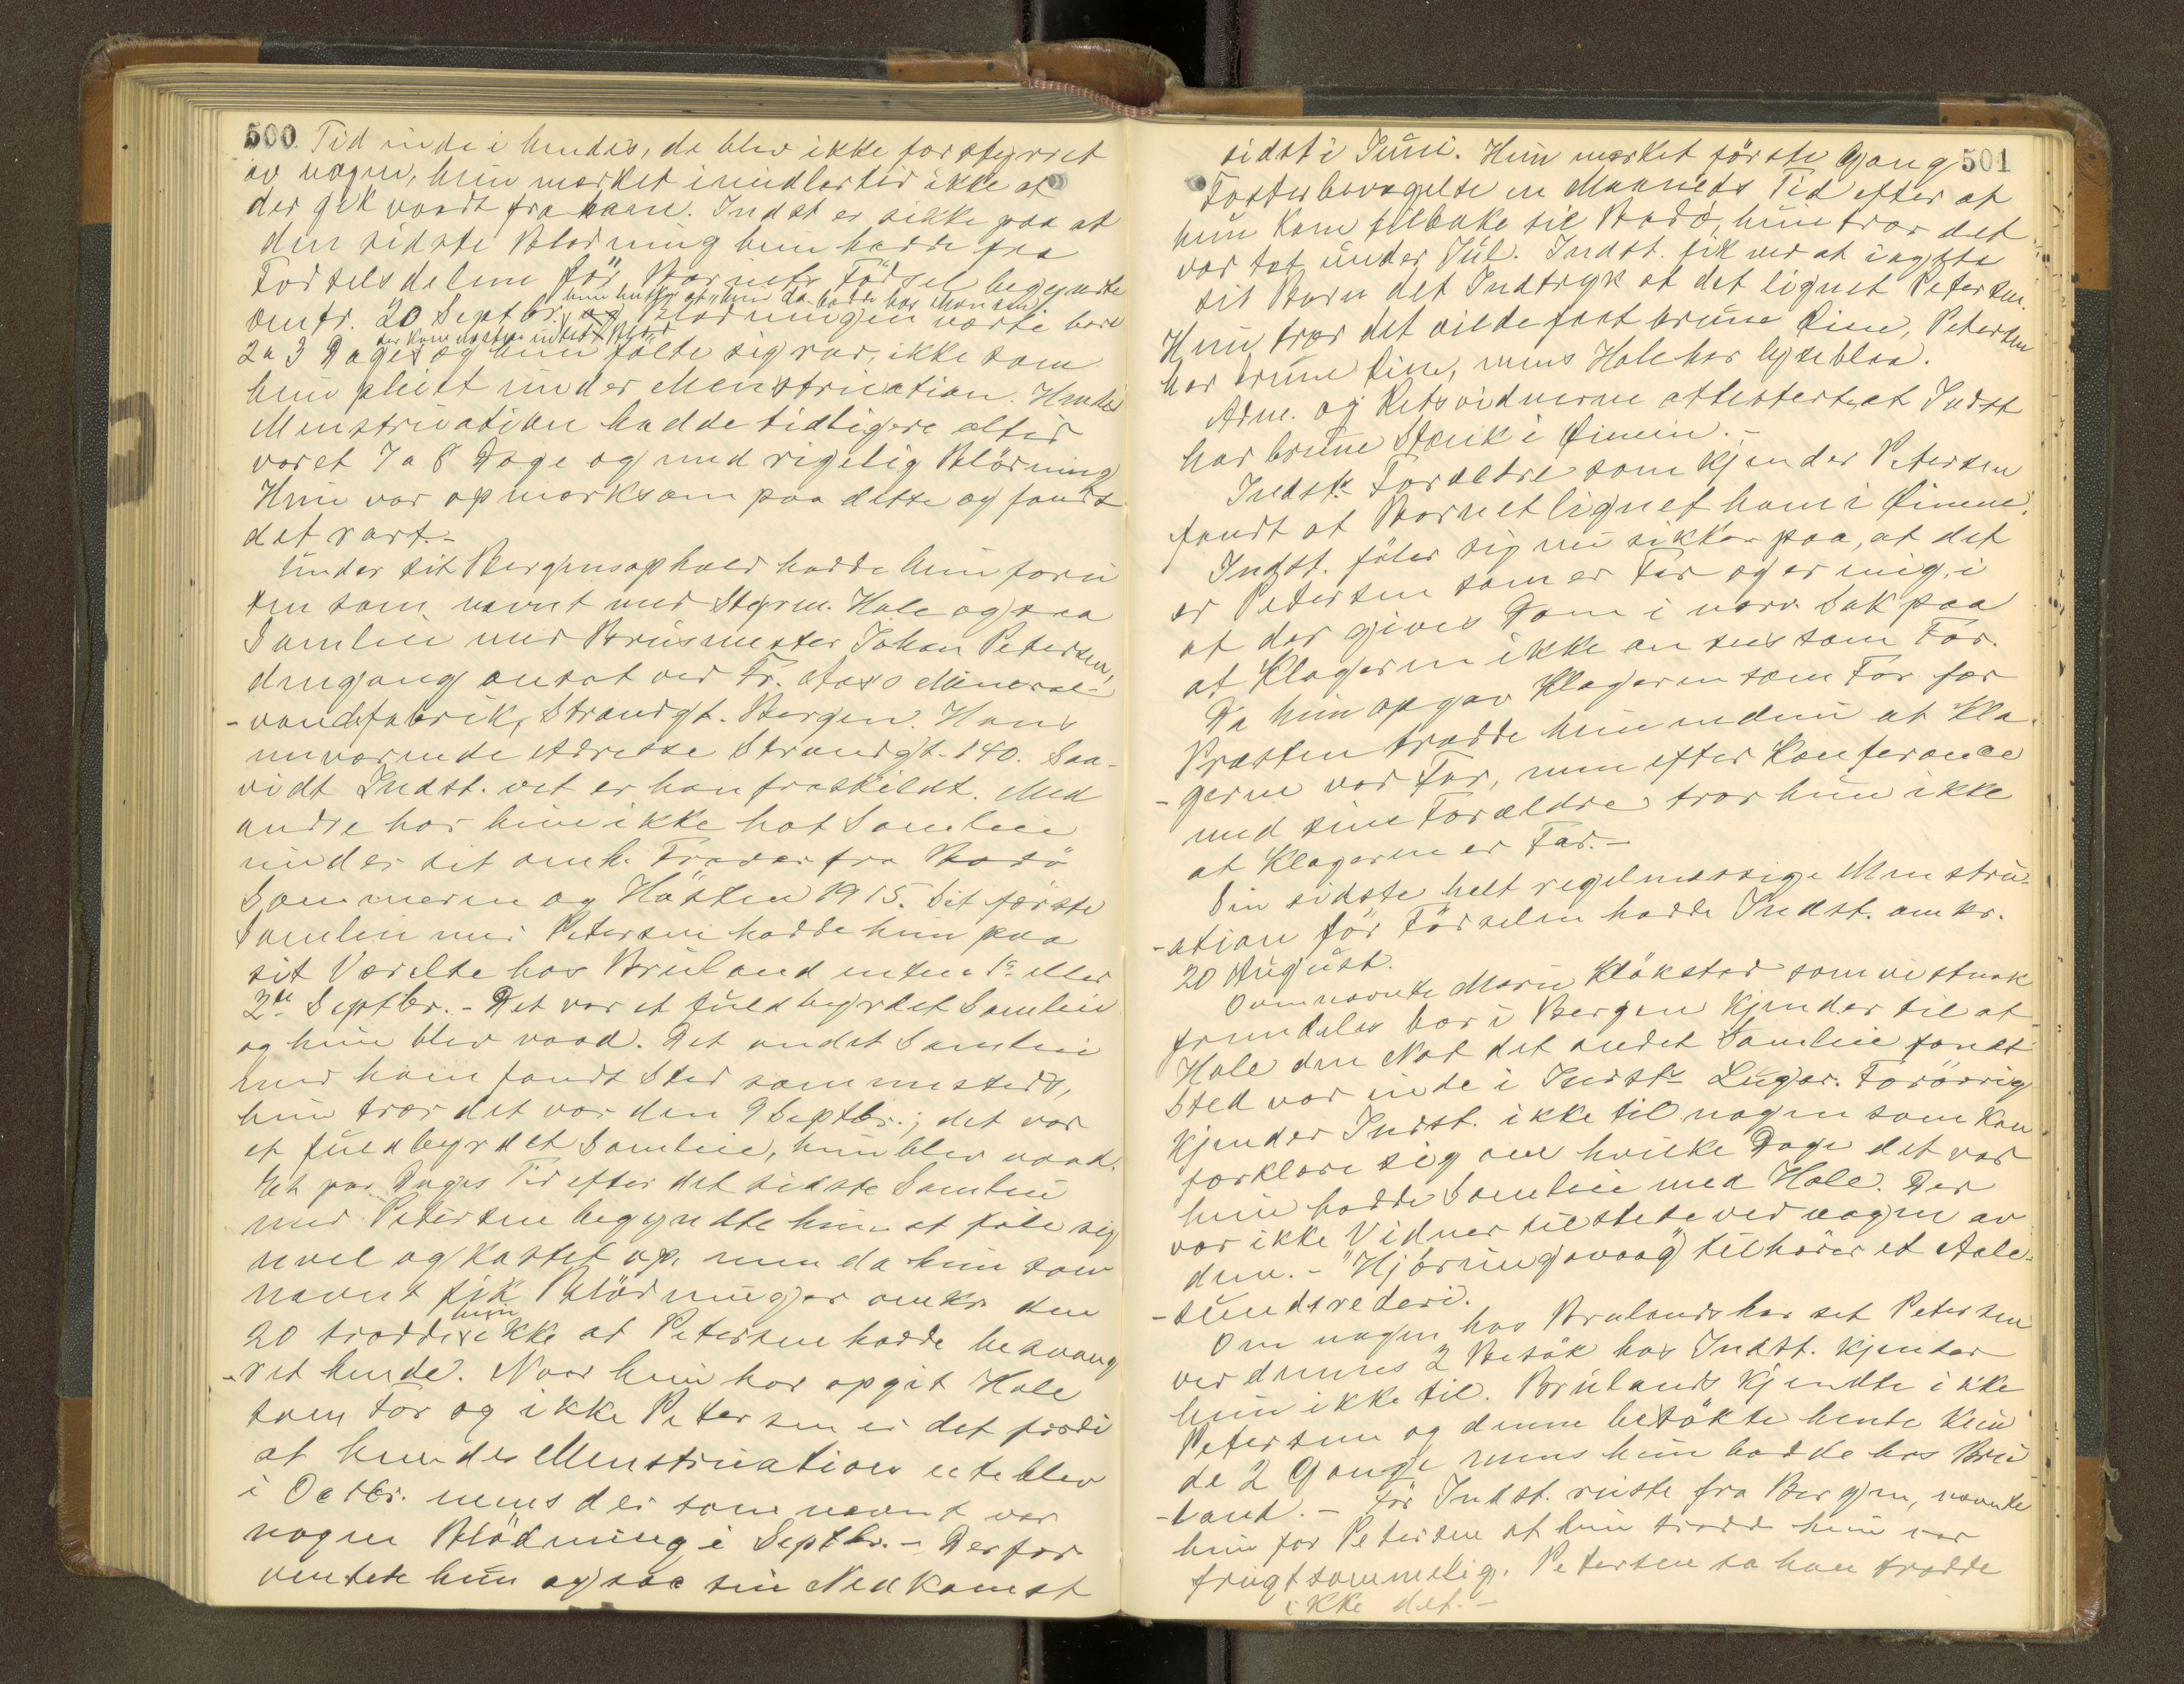 500
Tid inde i hendes, de blev ikke forstyrret
av nogen, hun merket imidlertid ikke at
der gik vandt fra ham. Indst er sikker paa at
den sidste Blødning hun hadde fra
Fødselsdelene før Barnets Fødsel begyndte
hun husker at hun da bodde hos Monsen
omtr. 20 Septbr. Blødningen varte bare
der kom næsten intet Blod
2 a 3 Dage og hun følte sig rar, ikke som
hun pleiet under Menstruation. Hendes
Menstruation hadde tidligere altid
varet 7 a 8 Dage og med rigelig Blødning
Hun var opmerksom paa dette og fandt
det rart.-
Under sit Bergensophold hadde hun foru
ten som nævnt med Styrm. Hole ogsaa
Samleie med Brusmester Johan Petersen,
dengang ansat ved Fr. Mineral-
-vandsfabrik, Strandgt. Bergen. Hans
nuværende Adresse Strandgt. 140. Saa-
vidt Indst. vet er han fraskildt. Med
andre har hun ikke hat Samleie
under sit omh. Fravær fra Bodø
Sommeren og Høsten 1915. Sit første
Samleie med Petersen hadde hun paa
sit Værelse hos Bruland enten 1ste eller
2den Septbr. - Det var et fuldbyrdet Samleie
og hun blev vaad. Det andet Samleie
med ham fandt Sted sammesteds,
hun tror det var den 9 Septbr.; det var
et fuldbyrdet Samleie, hun blev vaad.
Et par Dages Tid efter det sidste Samleie
med Petersen begyndte hun at føle sig
uvel og kastet op, men da hun som
nævnt fik Blødninger omkr. den
hun
20 trodde ikke at Petersen hadde besvang
-ret hende. Naar hun har opgit Hole
som Far og ikke Petersen er det fordi
at hendes Menstruation uteblev
i Octbr. mens der som nævnt var
nogen Blødning i Septbr. - Derfor
ventet hun ogsaa sin Nedkomst
501
sidst i Juni. Hun merket første Gang
Fosterbevægelse en Maaneds Tid efter at
hun kom tilbake til Bodø, hun tror det
var tæt under Jul. Indst. fik ved at iagtta
sit Barn det Indtryk at det lignet Petersen.
Hun tror det vilde faat brune Øine, Petersen
har brune Øine, mens Hole har lyseblaa.
Adm. og Retsvidnerne attesterte at Indst
har brune Stænk i Øinene.-
Indsts Forældre som kjender Petersen
fandt at Barnet lignet ham i Øinene.
Indst. føler sig nu sikker paa, at det
er Petersen som er Far og er enig i
at der gives Dom i nærv. Sak paa
at Klageren ikke ansees som Far.
Da hun opgav Klageren som Far for
Præsten trodde hun endnu at Kla-
-geren var Far, men efter Konferance
med sine Forældre tror hun ikke
at Klageren er Far.-
Sin sidste helt regelmæssige Menstru-
-ation før Fødselen hadde Indst. omkr.
20 August.
Ovennævnte Marie Kløkstad som vistnok
fremdeles bor i Bergen kjender til at
Hole den Nat det andet Samleie fandt
Sted var inde i Indsts Lugar. Forøvrig
kjender Indst. ikke til nogen som kan
forklare sig om hvilke Dage det var
hun hadde Samleie med Hole. Der
var ikke Vidner tilstede ved nogen av
dem.- "Hjørungavaag" tilhører et Aale-
-sundsrederi.
Om nogen hos Brulands har set Petersen
ved dennes 2 Besøk hos Indst. kjender
hun ikke til. Brulands kjendte ikke
Petersen og denne besøkte hende kun
de 2 Gange mens hun bodde hos Bru-
-land. - Før Indst. reiste fra Bergen, nævnte
hun for Petersen at hun trodde hun var
frugtsommelig. Petersen sa han trodde
ikke det.-